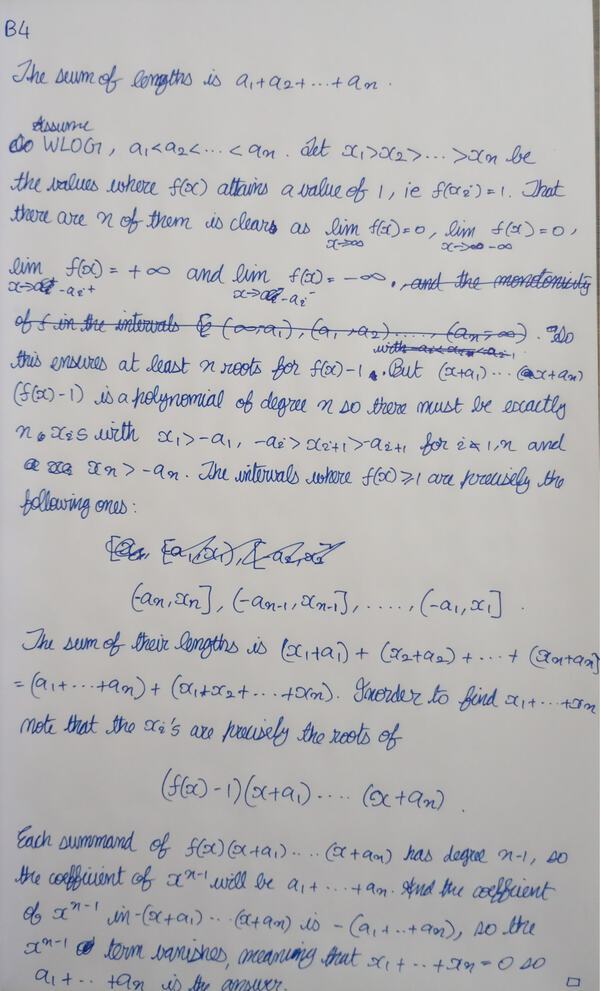 B4
The sum of lengths is a₁+a₂+...+aₙ.
Assume
WLOG, a₁<a₂<...<aₙ. Let x₁>x₂>...>xₙ be
the values where f(x) attains a value of 1, ie f(xᵢ)=1. That
there are n of them is clear as lim x→∞ f(x)=0, lim x→-∞ f(x)=0,
lim x→-aᵢ⁺ f(x)=+∞ and lim x→-aᵢ⁻ f(x)=-∞. , and the monotonicity
of f in the intervals (∞,a₁), (a₁,a₂)....., (aₙ,∞). So
with -aᵢ<xᵢ<-aᵢ₋₁
this ensures at least n roots for f(x)-1. But (x+a₁)...(x+aₙ)
(f(x)-1) is a polynomial of degree n so there must be exactly
n xᵢs with x₁>-a₁, -aᵢ>xᵢ₊₁>-aᵢ₊₁ for i≠1,n and
xₙ>-aₙ. The intervals where f(x)≥1 are precisely the
following ones:
[a₁,x₁), [-a₂,x₂
(-aₙ,xₙ], (-aₙ₋₁,xₙ₋₁], ....., (-a₁,x₁].
The sum of their lengths is (x₁+a₁)+(x₂+a₂)+...+(xₙ+aₙ)
=(a₁+...+aₙ)+(x₁+x₂+...+xₙ). Inorder to find x₁+...+xₙ
note that the xᵢ's are precisely the roots of
(f(x)-1)(x+a₁)....(x+aₙ).
Each summand of f(x)(x+a₁)....(x+aₙ) has degree n-1, so
the coefficient of xⁿ⁻¹ will be a₁+...+aₙ. And the coefficient
of xⁿ⁻¹ in -(x+a₁)...(x+aₙ) is -(a₁+..+aₙ), so the
xⁿ⁻¹ term vanishes, meaning that x₁+...+xₙ=0 so
a₁+...+aₙ is the answer. □